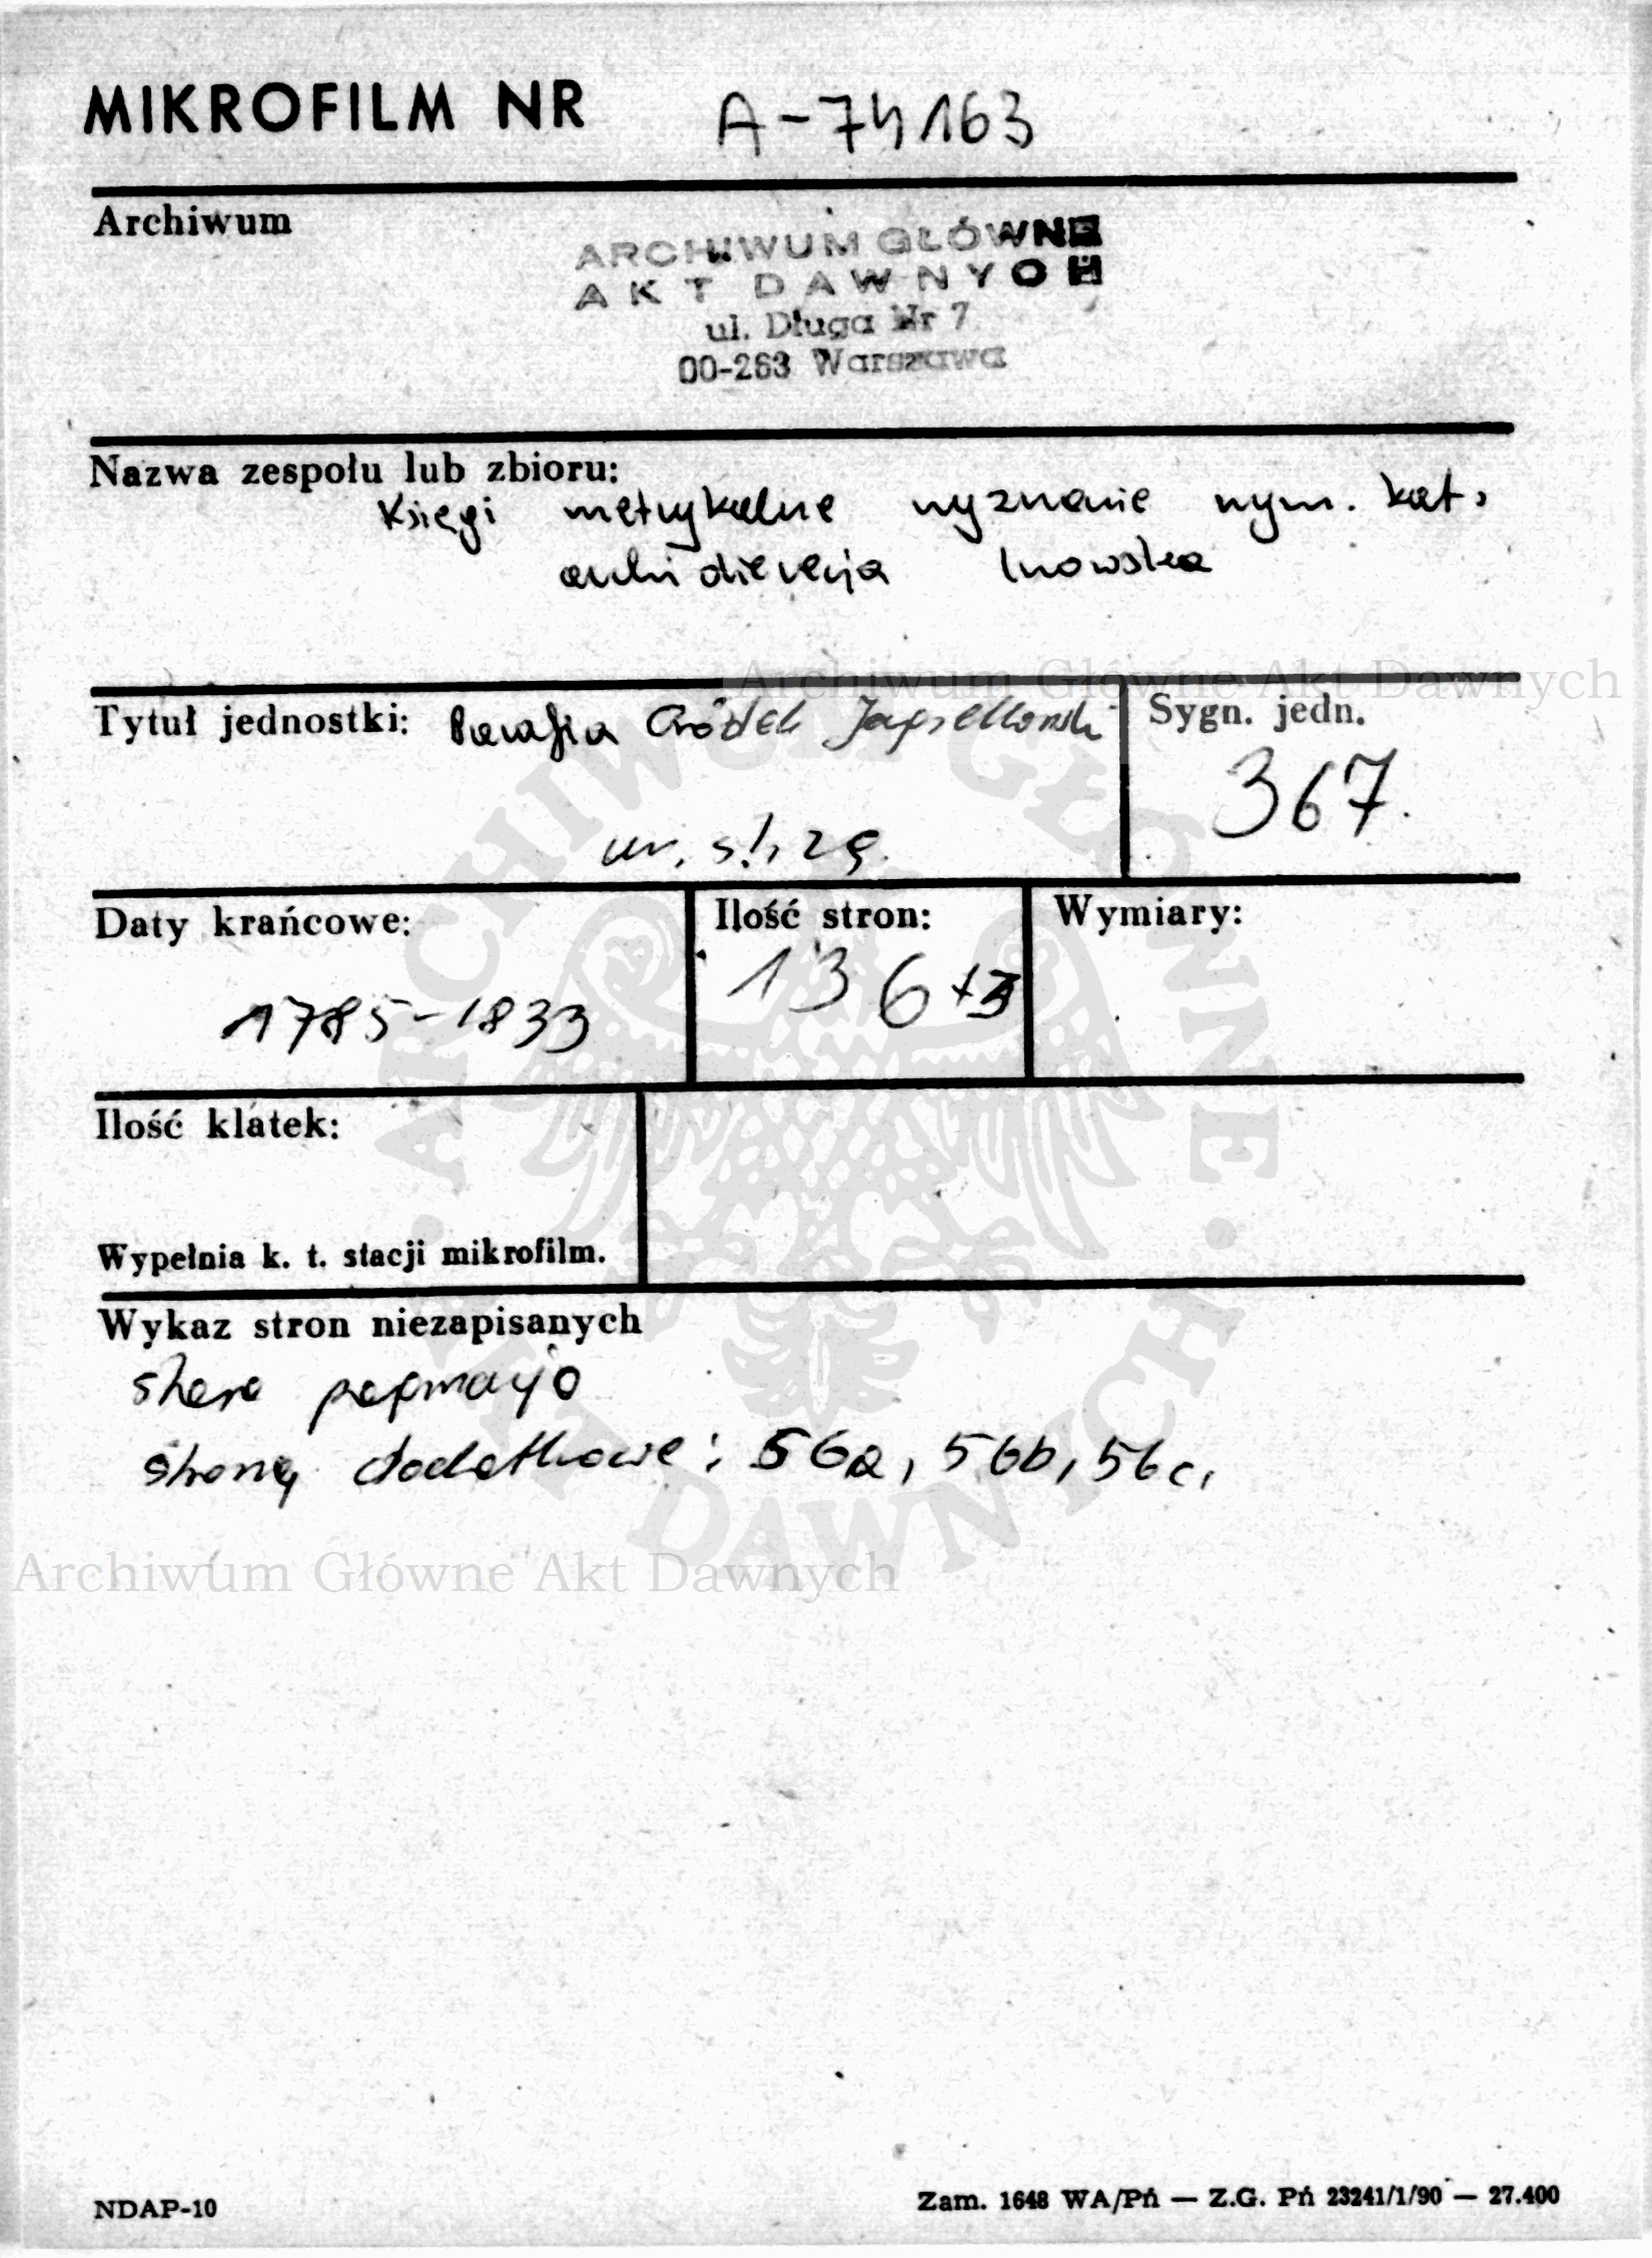 MIKROFILM NR A-74163
Archiwum
ARCHIWUM GŁÓWNE
AKT DAWNYCH
ul. Długa Nr 7
00-263 Warszawa
Nazwa zespołu lub zbioru:
Księgi metrykalne wyznanie rzym. kat.
archidiecezja lwowska
Archiwum Główne Akt Dawnych
Tytuł jednostki: Parafia Gródek Jagielloński
Sygn. jedn.
367.
ur. śl. zg.
Daty krańcowe:
1785-1833
Ilość stron:
136+3
Wymiary:
Ilość klatek:
Wypełnia k. t. stacji mikrofilm.
Wykaz stron niezapisanych
stara paginacja
strony dodatkowe: 56a, 56b, 56c,
Archiwum Główne Akt Dawnych
ARCHIWUM GŁÓWNE AKT DAWNYCH
NDAP-10
Zam. 1648 WA/Pń — Z.G. Pń 23241/1/90 — 27.400